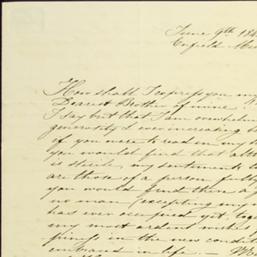 June 9th 184
Enfield
How shall I express you my
Dearest Brother of mine!
I say but that I am overwhelm
generosity & ever increasing
if you were to read in my
you would find that altho
is steele, my sentiments
are those of a person fully
you would find there a
no man (excepting my
has ever occupied yet, toge
my most ardent wishes
in the new condit
embraced in life. —